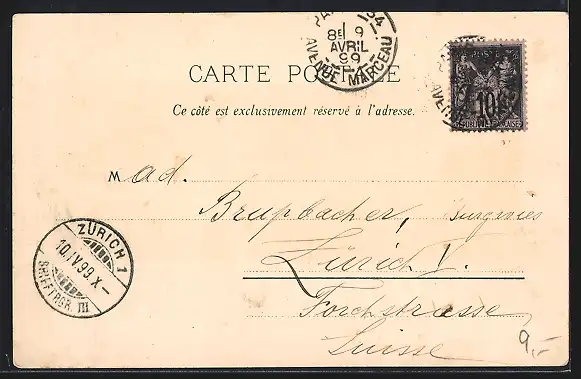 PARIS 34
8E 9
AVRIL
99
AVENUE MARCEAU
CARTE POSTALE
Ce côté est exclusivement réservé à l'adresse.
10
Mad.
Brupbacher,
Zürich V.
Forchstrasse
Suisse
ZÜRICH 1
10.IV.99.X-
BRIEFTRGR. III
9,-